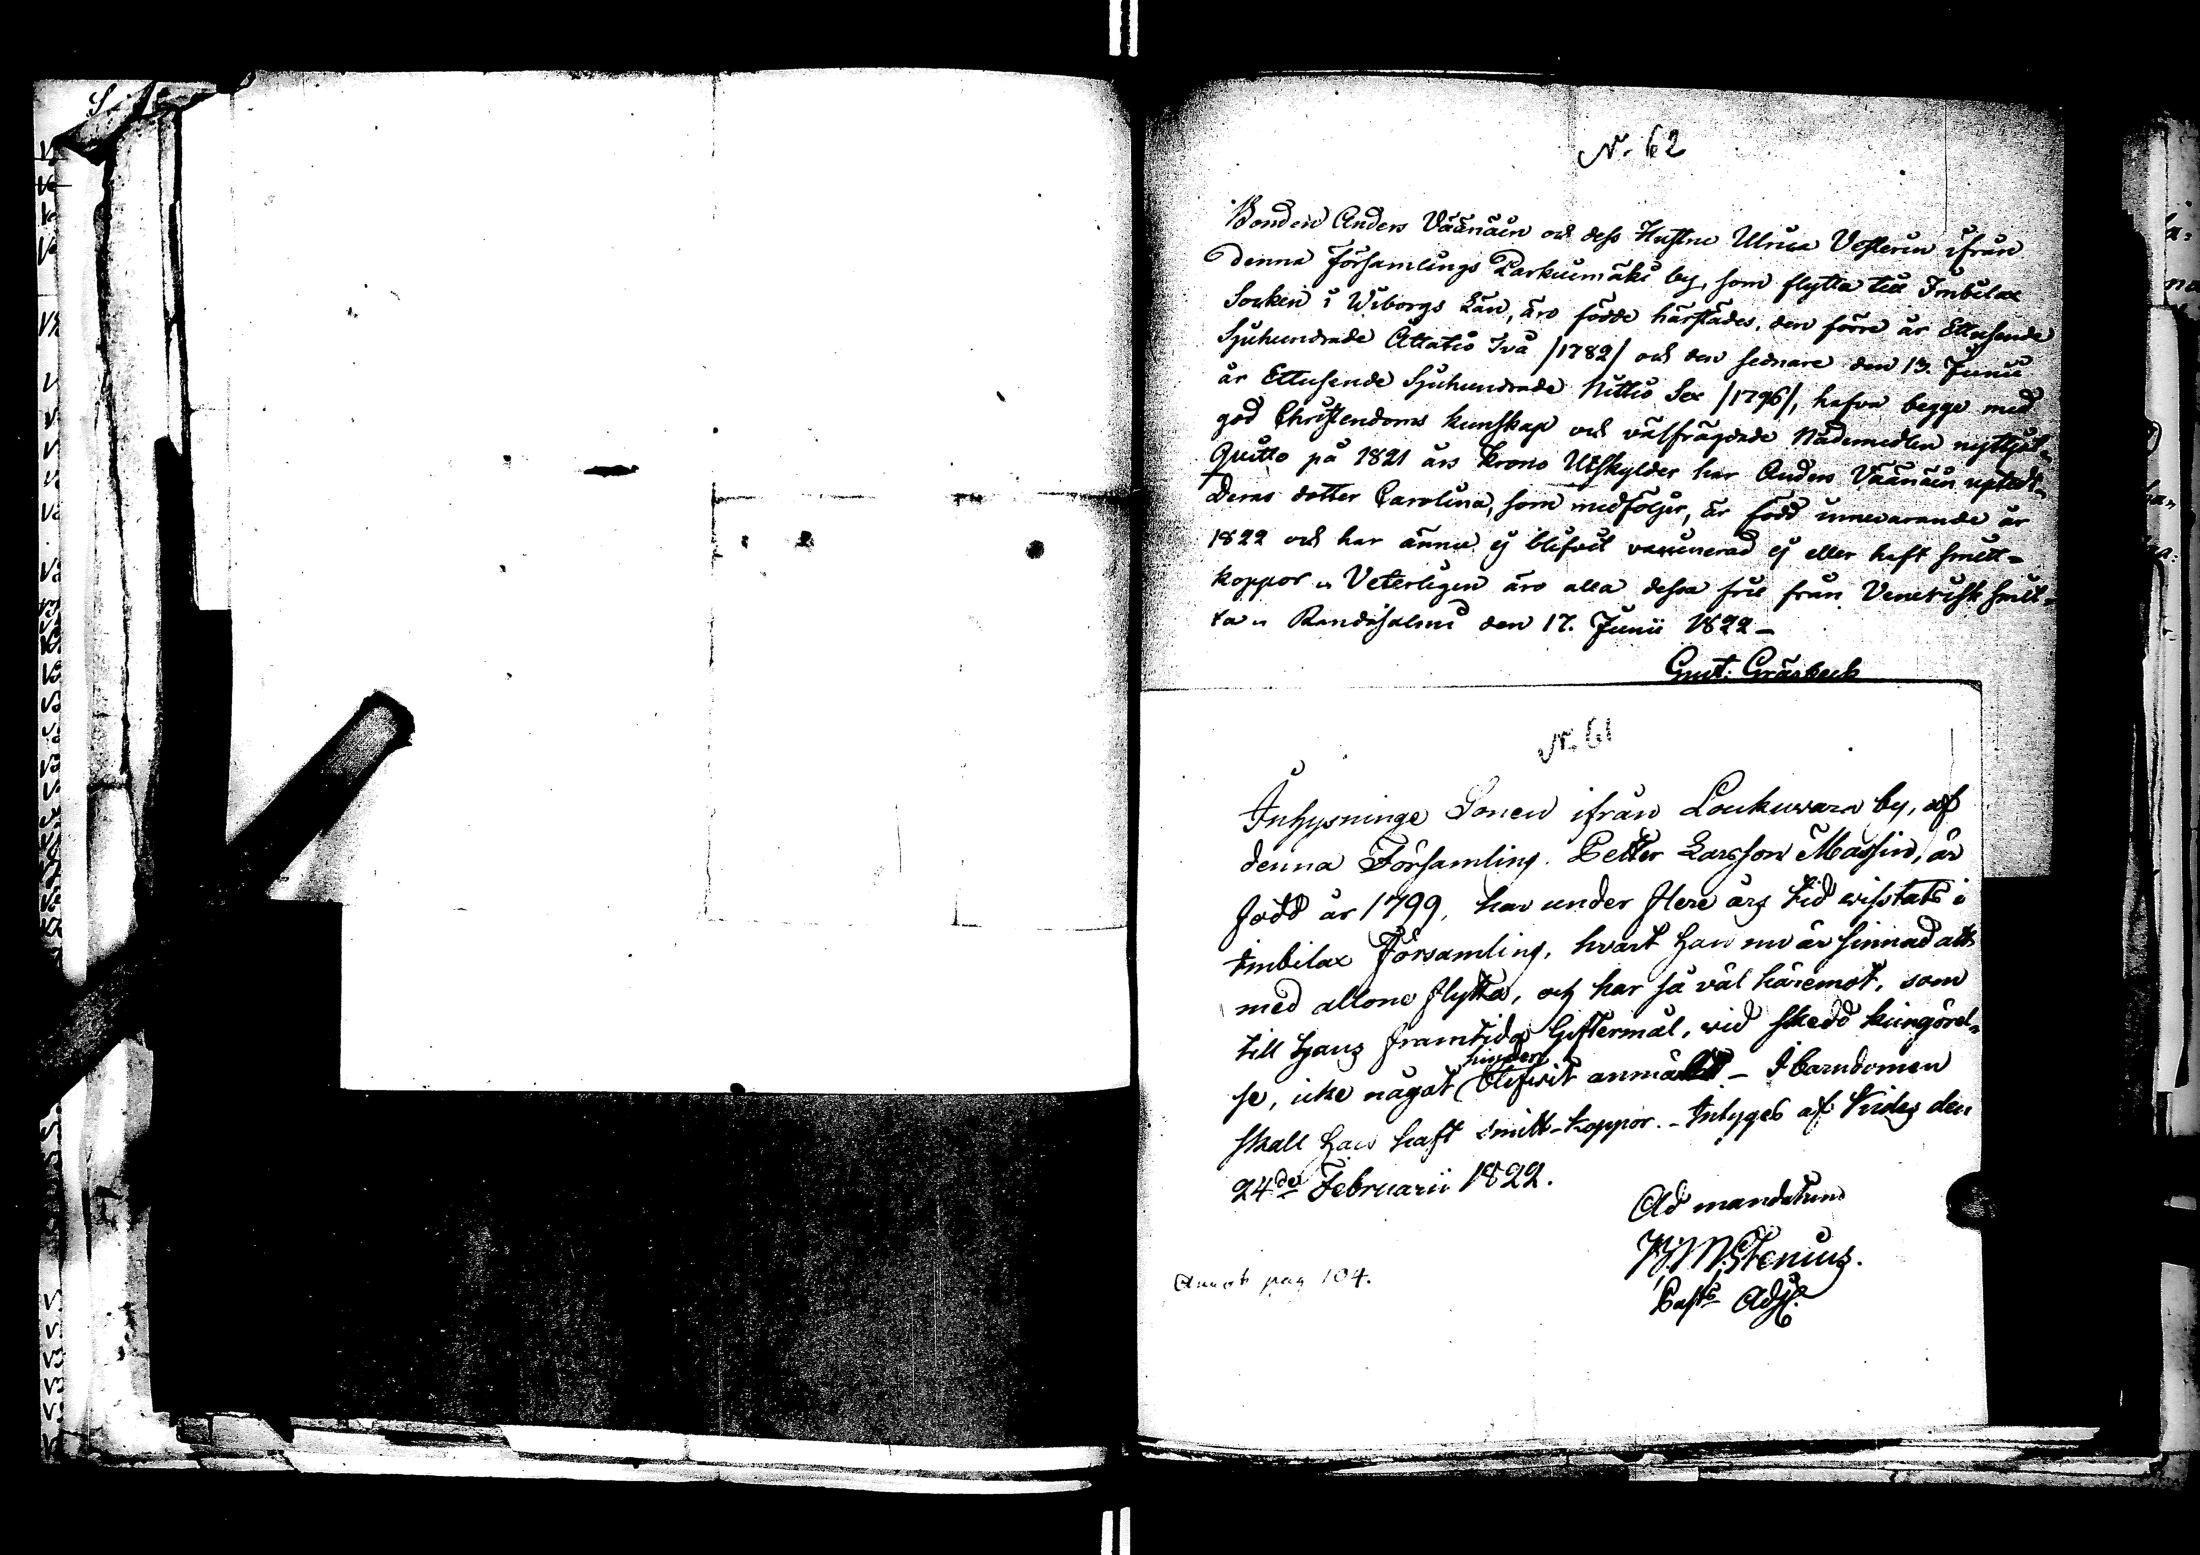 N. 62
Bonden Anders Väänäin och dess Hustru Ulrica Vesterin ifrån
denna Församlings Parkuimäki by, som flytta till Imbilax
Socken i Wiborgs Län, äro födde härstädes, den förre år Ettusende
Sjuhundrade Åttatio Två /1782/ och den sednare den 13. Junii
år Ettusende Sjuhundrade Nittio Sex /1796/, hafva begge med
god Christendoms kunskap och välfrägdade Nådemedlen nyttjat.
Quitto på 1821 års Krono Utskylder har Anders Väänäin uptedt.
Deras dotter Carolina, som medföljer, är född innevarande år
1822 och har ännu ej blifvit vaccinerad ej eller haft smitt-
koppor. Veterligen äro alla dessa frie från Venerisk smit-
ta. Randasalmi den 17. Junii 1822 –
Gust. Gråsbeck
N. 61
Inhysninge Sonen ifrån Loukuvara by, af
denna Församling. Petter Larsson Massin, är
född år 1799, har under flere års tid vistats i
Imbilax Församling, hvart han nu är sinnad att
med allone flytta, och har så väl häremot, som
till hans framtida Giftermål, vid skedd kungörel-
se, icke något hinder blifvit anmäldt. – I barndomen
skall han haft smitt-koppor. – Intyges af Kides den
24de Februarii 1822.
Ad mandatum
Stenius.
Past: Adj.
Annot pag 104.